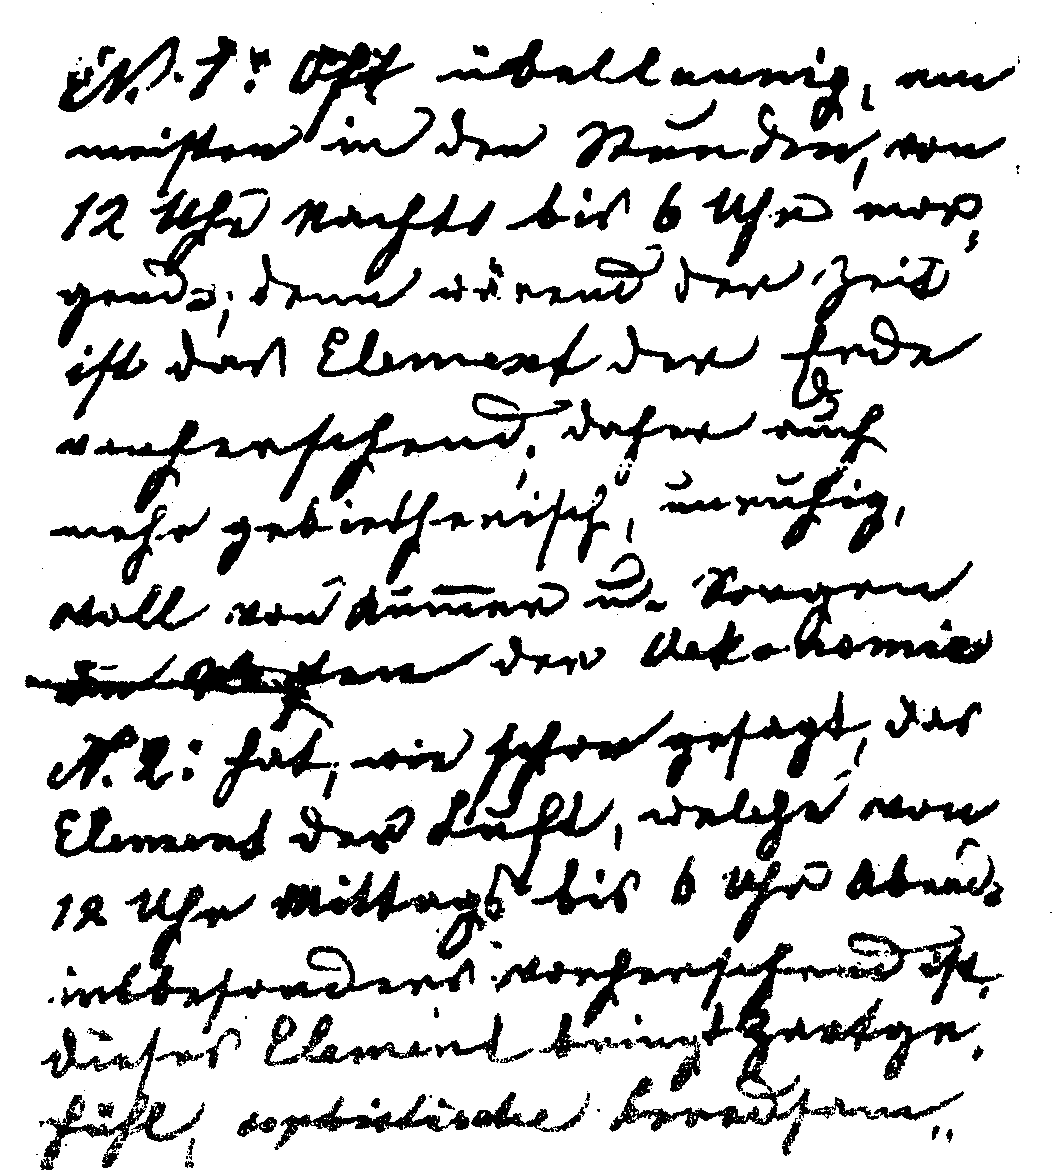 N. 1: Oft übellaunig, am
meisten in den Stunden, von
12 Uhr Nachts bis 6 Uhr mor,
gends; denn wärend der Zeit
ist das Element der Erde
vorherschend, daher auch
mehr gebietherisch, unruhig,
voll von Kum̅er u. Sorgen
der Oekonomie
N. 2: hat, wie schon gesagt, das
Element der Luft, welche von
12 Uhr Mittags bis 6 Uhr Abends
insbesonders vorherschend ist.
dieses Element bringt Zartge,
fühl, sophistische Beredsam,,